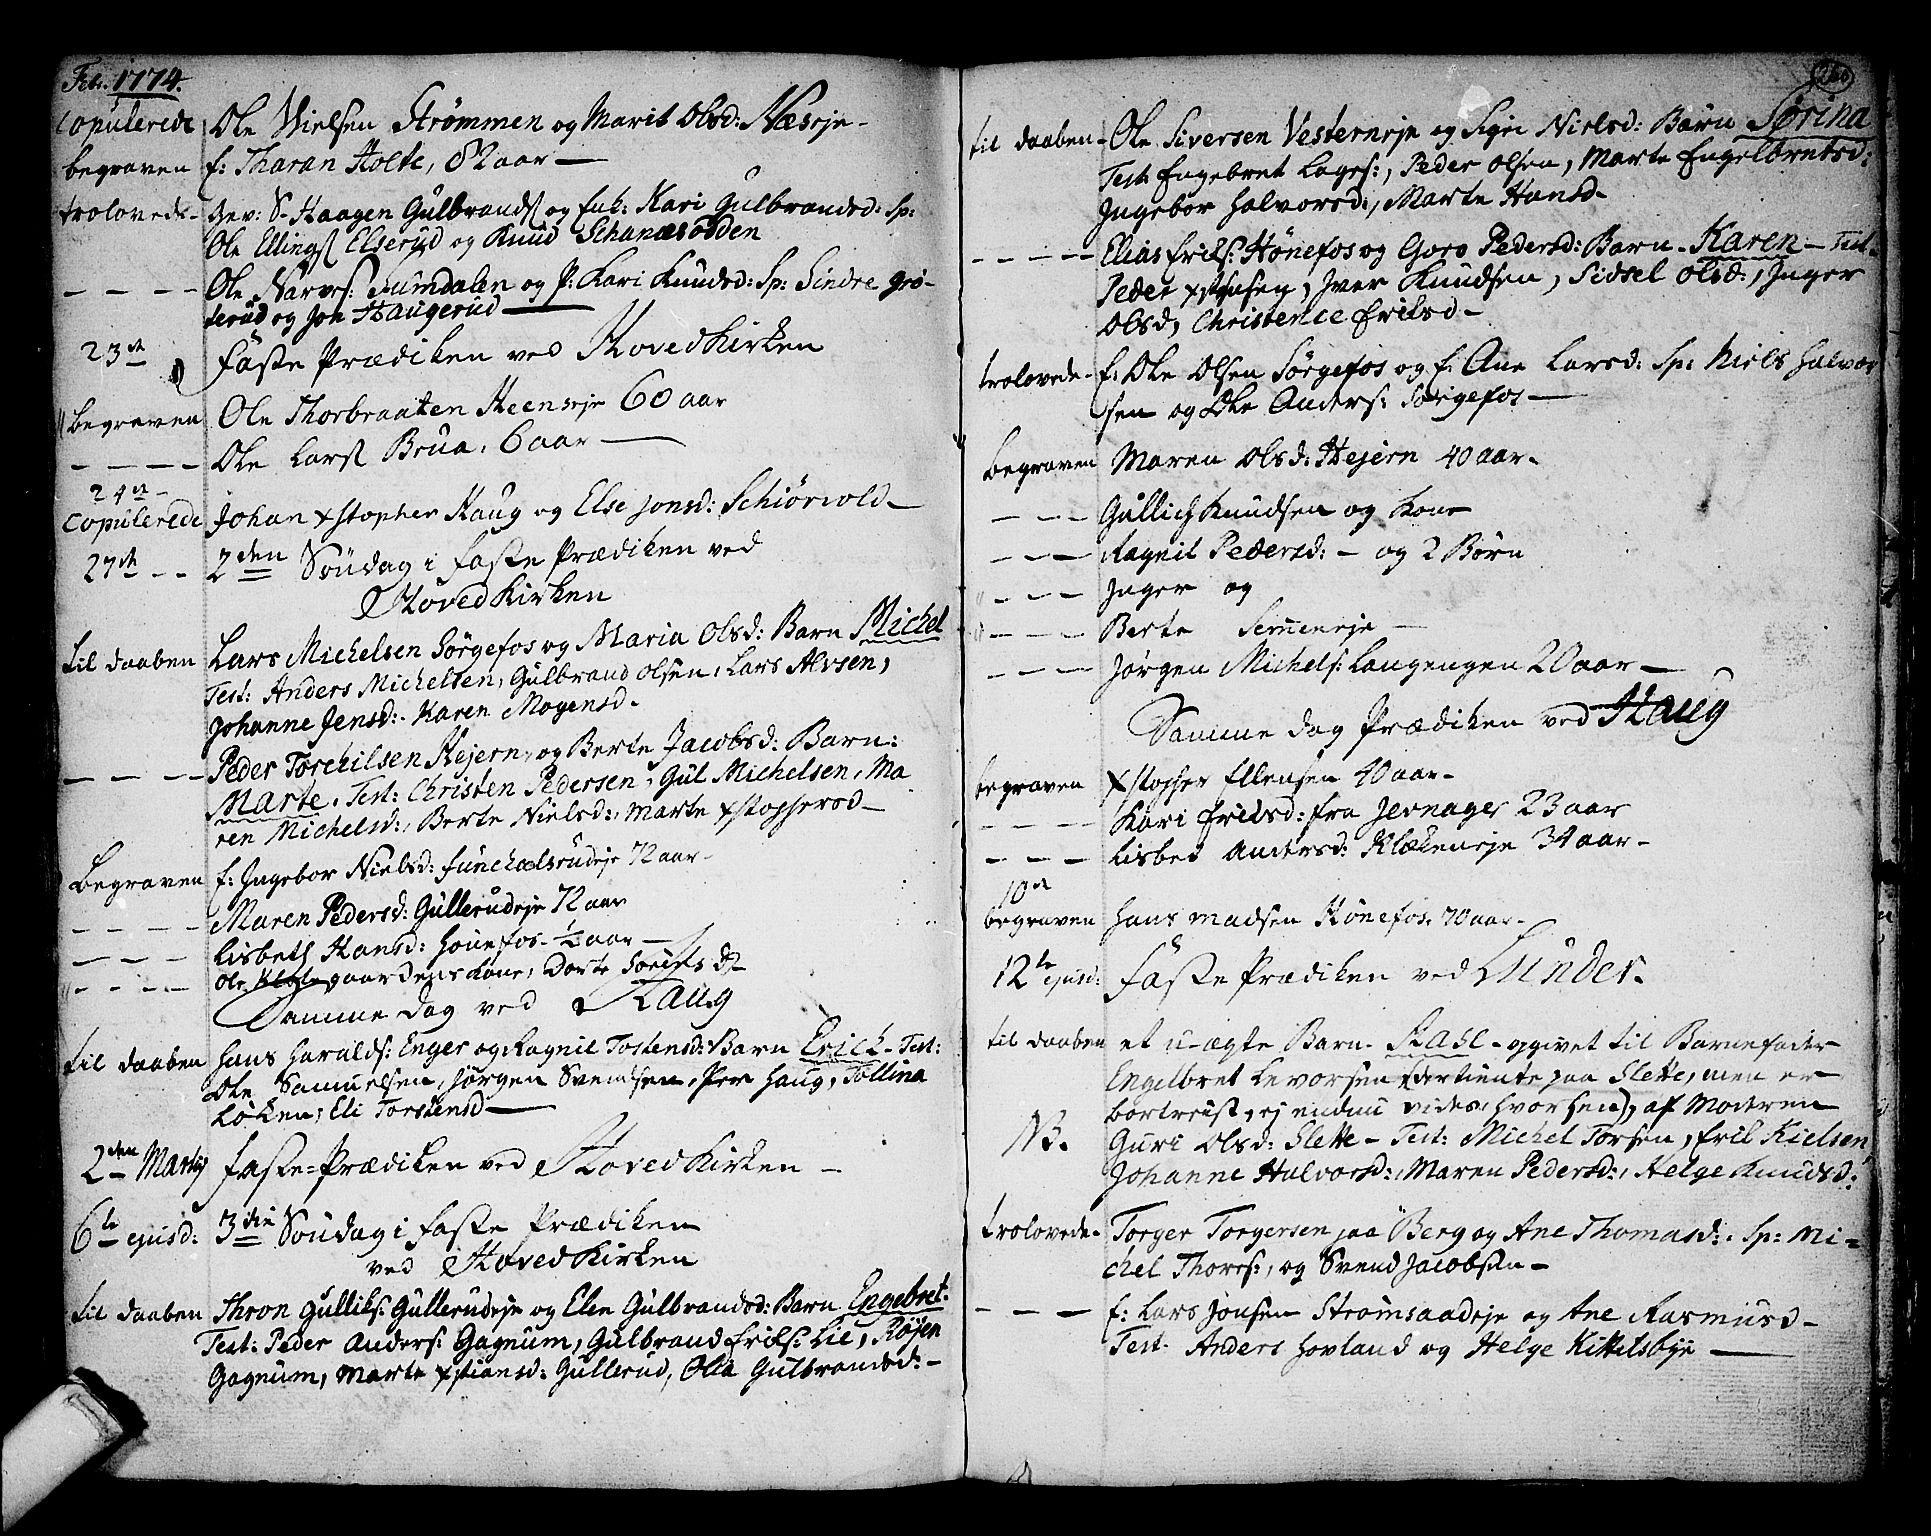 Feb. 1774.
Copulerede Ole Nielsen Strømmen og Marit Olsd: Næseje-
begraven f: Tharan Holte, 82 aar—
trolovede- Gev: S- Haagen Gulbrands og Enk: Kari Gulbrandsd: Sp:
Ole Ellings Elserud og Knud Schanasødden
— — — — Ole Narves: Aumdalen og P: Kari Knudsd: Sp: Sindre Gro-
terud og Jon Haugerud—
23de Faste Prædiken ved Hoved Kirken
begraven Ole Thorbraaten Heenseje 60 aar
— — — — Ole Lars Brua, 6 aar—
24de-
Copulerede Johan Xstopher Haug og Else Jonsd: Schiørvold—
27de - - 2den Søndag i Faste Prædiken ved
Hoved Kirken
til daaben Lars Michelsen Sørgefos og Maria Olsd: Barn Michel
Test: Anders Michelsen, Gulbrand Olsen, Lars Alvsen,
Johanne Jensd:- Karen Mogensd-
— — — — Peder Torchilsen Hejern, og Berte Jacobsd: Barn:
Marte. Test: Christen Pedersen, Gul Michelsen, Ma
ren Michelsd:, Berte Nielsd:, Marte Xstophersd—
Begraven f: Ingebor Nielsd: Funchelsrudeje 72 aar-
— — — — Maren Pedersd: Gullerudeje 72 aar
— — — — Lisbeth Hansd: Hønefos- ½ aar—
— — — — Ole gaardens Kone, Dorte d-
Samme Dag ved Haug
til daaben Hans Haralds: Enger og Ragnil Tostensd: Barn Erich- Test:
Ole Samuelsen, Jørgen Svendsen, Per Haug, Tollina
Løken, Eli Torstensd—
2den Martij Faste-Prædiken ved Hoved Kirken —
6te ejusd: 3die Søndag i Faste Prædiken
ved Hoved Kirken
til daaben Thron Gulliks: Gullerudeje og Elen Gulbrandsd: Barn Engebret.
Test: Peder Anders: Gagnum, Gulbrand Eriks: Lie, Røjen
Gagnum, Marte Xstiansd: Gullerud, Olia Gulbrandsd:-
260
til daaben- Ole Siversen Vesterneje og Sigri Nielsd: Barn Sørina
Test: Engebret Lages:, Peder Olsen, Marte Engelbretsd:
Ingebor Halvorsd:, Marte Hansd-
— — — — Elias Eriks: Hønefos og Goro Pedersd: Barn- Karen- Test-
Peder Xstensen, Iver Knudsen, Sidsel Olsd:, Inger
Olsd, Christence Eriksd-
trolovede- f: Ole Olsen Sørgefos og f: Ane Larsd: Sp: Niels Halvor
sen og Ole Anders: Sørgefos—
begraven Maren Olsd: Hejern 40 aar-
— — — Gullich Knudsen og Kone
— — — Ragnil Pedersd: - og 2 Børn
— — — Inger og
— — — Berte Semmeneje —
— — — Jørgen Michels: Langengen 20 aar—
Samme Dag Prædiken ved Haug
begraven Xstopher Ellensen 40 aar-
— — — Kari Eriksd: fra Jevnager 23 aar
— — — Lisbet Andersd: Klækeneje 34 aar-
10de
begraven Hans Madsen Hønefos. 70 aar-
12te ejusd: Faste Prædiken ved Lunder.
til daaben et u-ægte Barn- Kasl- opgivet til Barnefader
Engelbret Levorsen (Tertiente paa Slette, men er
bortreist, ej endnu vides hvorhen), af Moderen
NB. Guri Olsd: Slette- Test: Michel Torsen, Erik Kielsen,
Johanne Halvorsd:, Maren Pedersd:, Helge Knudsd:
trolovede- Torger Torgersen paa Berg og Ane Thomasd:. Sp: Mi-
chel Thores:, og Svend Jacobsen-
— — — f: Lars Jonsen Strømsaadeje og Ane Rasmusd-
Test. Anders Hovland og Helge Kittelsbye —